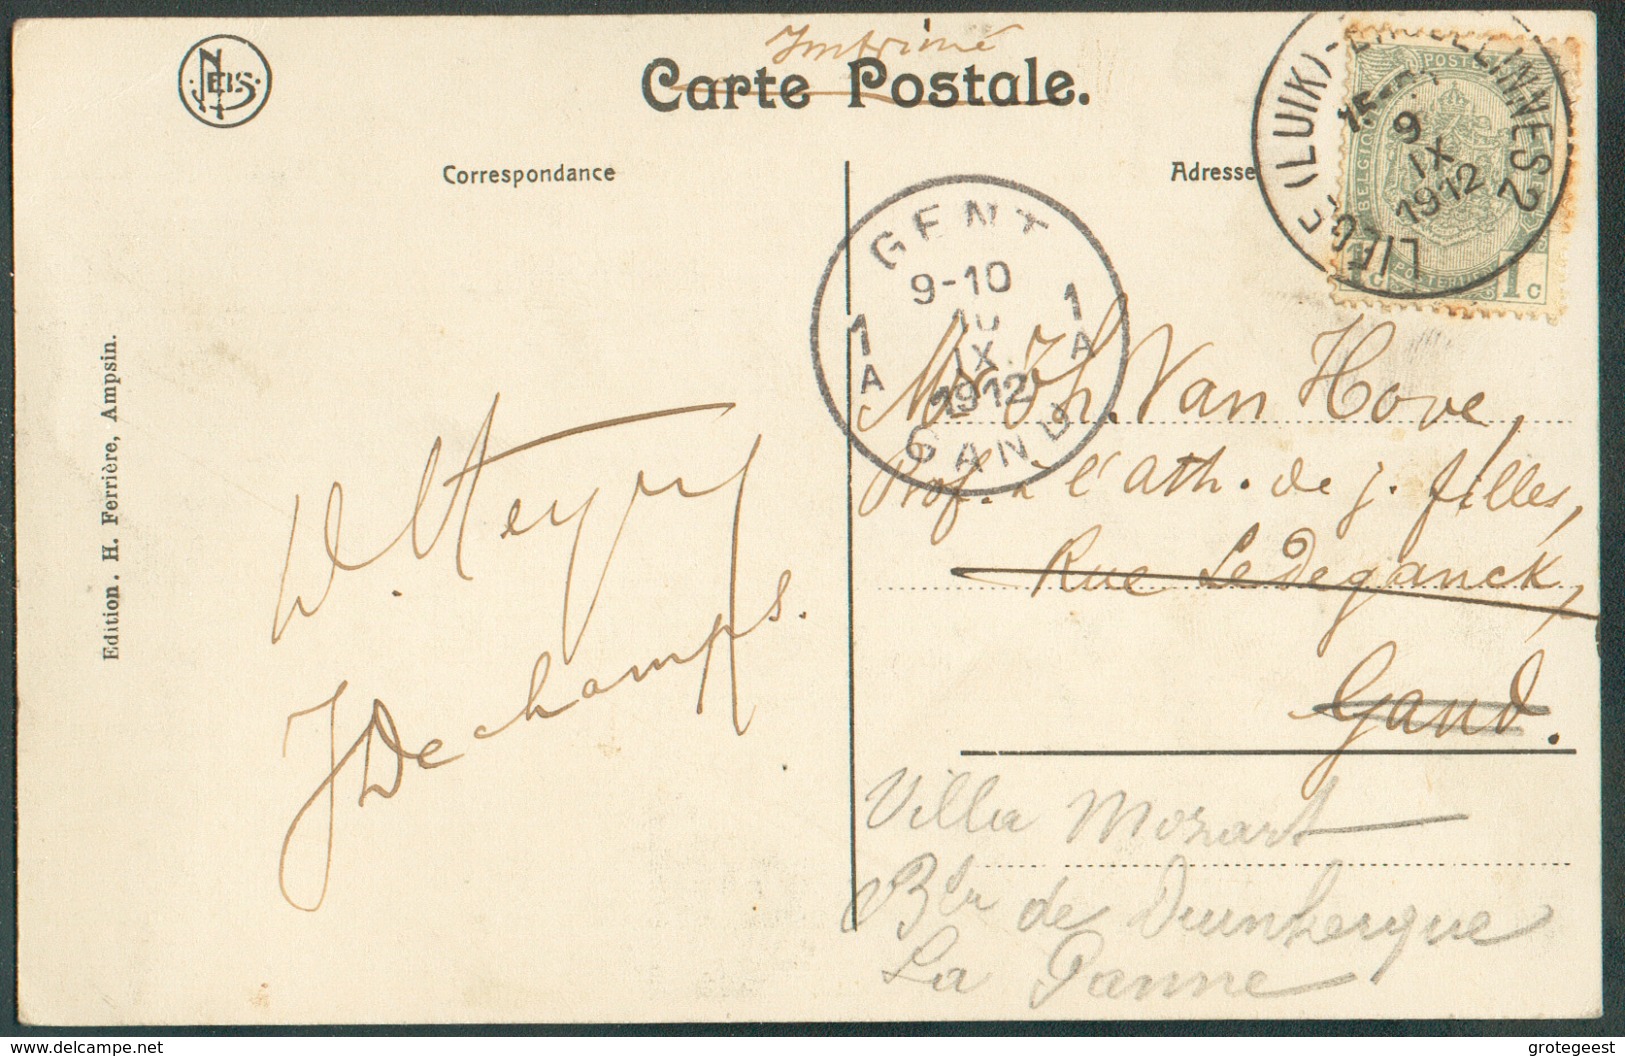 Imprimé
NELS
Carte Postale.
Correspondance
Adresse
LIEGE (LUIK)
2
15-
9
IX
1912
BELGIQUE
1c
GENT
9-10
10
IX
1912
1A
1A
GAND
M. Th. Van Hove,
Prof. à l'ath. de j. filles,
Rue Ledeganck,
Gand.
Villa Mozart
de Dunkerque
La Panne
J Dechamps.
Edition. H. Ferrière, Ampsin.
https://www.delcampe.net
grotegeest